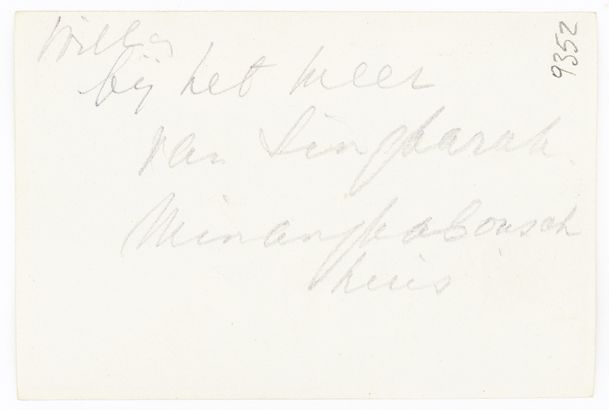 bij het meer
van Singkarah
Minangkabousch
huis
9352